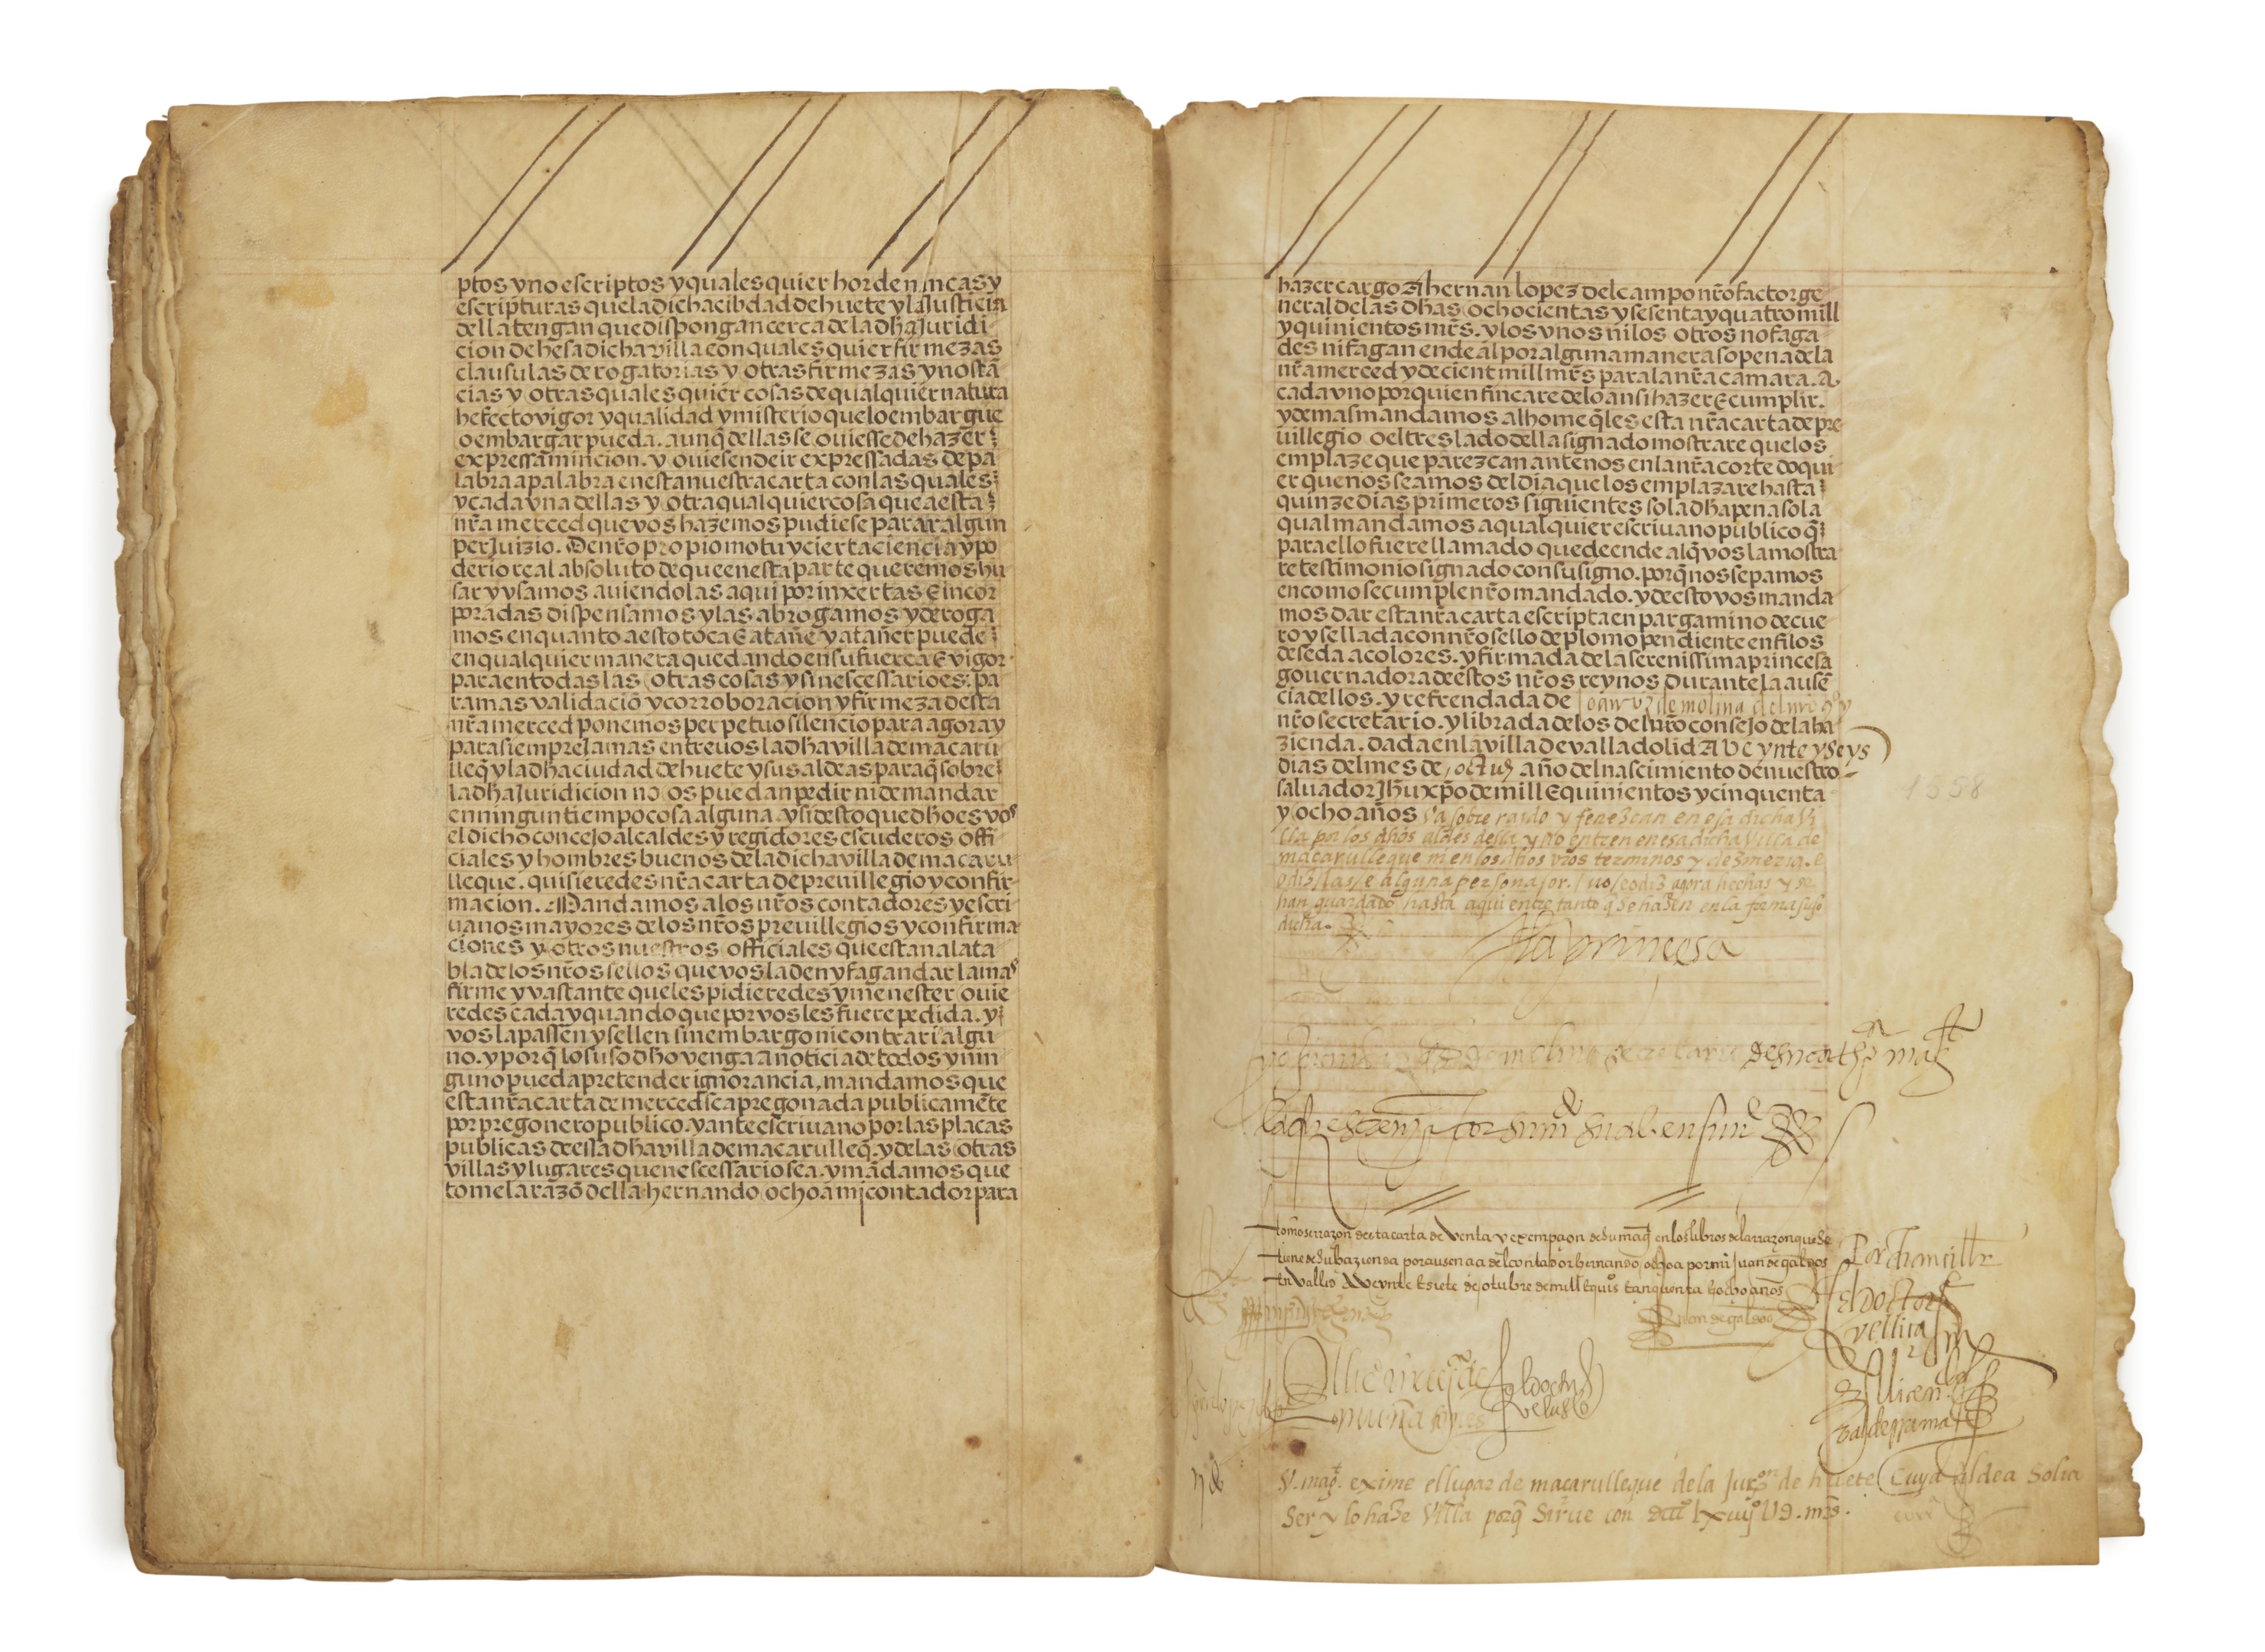 ptos y no escriptos y quales quier hordenancas y
escripturas que la dicha cibdad de huete y la Justicia
della tengan que dispongan cerca de la dha Juridi
cion de hesa dicha villa con quales quier firmezas
clausulas derogatorias y otras firmezas ynostã
cias y otras quales quier cosas de qualquier natura
hefecto vigor y qualidad y misterio que lo embargue
o embargar pueda. aunq̃ dellas se ouiesse de hazer
expressa mincion. y ouiesen de ir expressadas de pa
labra a palabra en esta nuestra carta con las quales
y cada vna dellas y otra qual quier cosa que a esta
nr̃a merced que vos hazemos pudiese parar algun
perJuizio. De nr̃o propio motu y cierta ciencia y po
derio real absoluto de que en esta parte queremos hu
sar y vsamos auiendolas aqui por inxertas E incor
poradas dispensamos y las abrogamos y deroga
mos en quanto a esto toca E atañe y atañer puede
en qualquier manera quedando en su fuerca E vigor
para en todas las otras cosas y sinescessario es. pa
ra mas validaciõ y corroboracion y firmeza desta
nr̃a merced ponemos perpetuo silencio para agora y
para siempre Jamas entre vos la dha villa de macaru
lleq̃ y la dha ciudad de huete y sus aldeas para q̃ sobre
la dha Juridicion no os puedan pedir ni demandar
en ningun tiempo cosa alguna. y si desto que dho es vos
el dicho concejo alcaldes y regidores escuderos offi
ciales y hombres buenos de la dicha villa de macaru
lleque. quisieredes nr̃a carta de preuillegio y confir
macion. Mandamos a los nr̃os contadores y escri
uanos mayores de los nr̃os preuillegios y confirma
ciones y otros nuestros officiales que estan a la ta
bla de los nr̃os sellos que vos la den y fagan dar la mas
firme y vastante que les pidieredes y menester ouie
redes cada y quando que por vos les fuere pedida. y
vos la passen y sellen sin embargo ni contrari algu
no. y porq̃ lo susodho venga a noticia de todos y nin
guno pueda pretender ignorancia, mandamos que
esta nr̃a carta de merced sea pregonada publicamẽte
por pregonero publico. y ante escriuano por las placas
publicas de essa dha villa de macarulleq̃. y de las otras
villas y lugares que nescessario sea. y mãdamos que
tome la razõ della hernando ochoa mi contador para
hazer cargo a hernan lopez del campo nr̃o factor ge
neral de las dhas ochocientas y sesenta y quatro mill
y quinientos mr̃s. y los vnos ni los otros no faga
des ni fagan ende al por alguna manera so pena de la
nr̃a merced y de cient mill mr̃s para la nr̃a camara. A
cada vno por quien fincare de lo ansi hazer E cumplir.
y demas mandamos al home q̃ les esta nr̃a carta de pre
uillegio o el treslado della signado mostrare que los
emplaze que parezcan ante nos en la nr̃a corte do qui
er que nos seamos del dia que los emplazare hasta
quinze dias primeros siguientes so la dha pena so la
qual mandamos a qual quier escriuano publico q̃
para ello fuere llamado que de ende al q̃ vos la mostra
re testimonio signado con su signo. porq̃ nos sepamos
en como se cumple nr̃o mandado. y de esto vos manda
mos dar esta nr̃a carta escripta en pargamino de cue
ro y sellada con nr̃o sello de plomo pendiente en filos
de seda a colores. y firmada de la serenissima princesa
gouernadora de estos nr̃os reynos durante la ausẽ
cia dellos. y refrendada de de molina
nr̃o secretario. y librada de los del nr̃o consejo de la ha
zienda. Dada en la villa de valladolid A Veynte y seys
dias del mes de, octu año del nascimiento de nuestro
saluador Jhu xp̃o de mill E quinientos y cinquenta
1558
y ocho años va sobre raido y fenescan en esa dicha vi
lla por los dhos aldes della y no entren en esa dicha Villa de
macarulleque ni en los dhos vr̃os terminos y dezmeria. e
alguna persona agora hechas y se
han guardado hasta aqui entre tanto q̃ se hazen en la forma suso
dicha.
la princesa
de molina secretario de su cath.ca mag.t
tomose razon desta carta de Venta y exempçion de su mag.t en los libros de la razon que se
tiene de su hazienda por ausencia del contador hernando ochoa por mi Juan de galdos
En Vallid A Veynte E siete de otubre de mill E quis cinquenta y ocho años
Por chanciller
Juan de galdos
el doctor
vellica
el doctor
velasco
S. mag.t exime el lugar de macarulleque de la Jur.on de huete Cuya aldea Solia
Ser y lo haze Villa porq̃ Sirue con mr̃s.